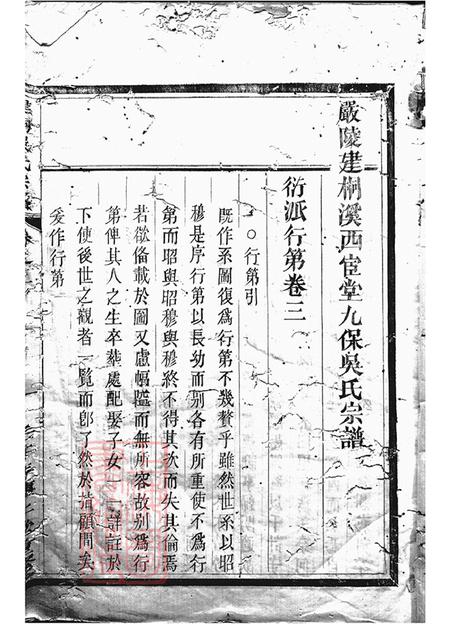 嚴陵建桐溪西宦堂九保吳氏宗譜
衍派行第卷三
○行第引
既作系圖復為行第不幾贅乎雖然世系以昭
穆是序行第以長幼而別各有所重使不為行
第而昭與昭穆與穆終不得其次而失其倫焉
若欲俻載於圖又慮幅隘而無所容故别為行
第俾其人之生卒葬處配娶子女一一詳註於
下使後世之觀者一覧而卽了然於指顧間矣
爰作行第